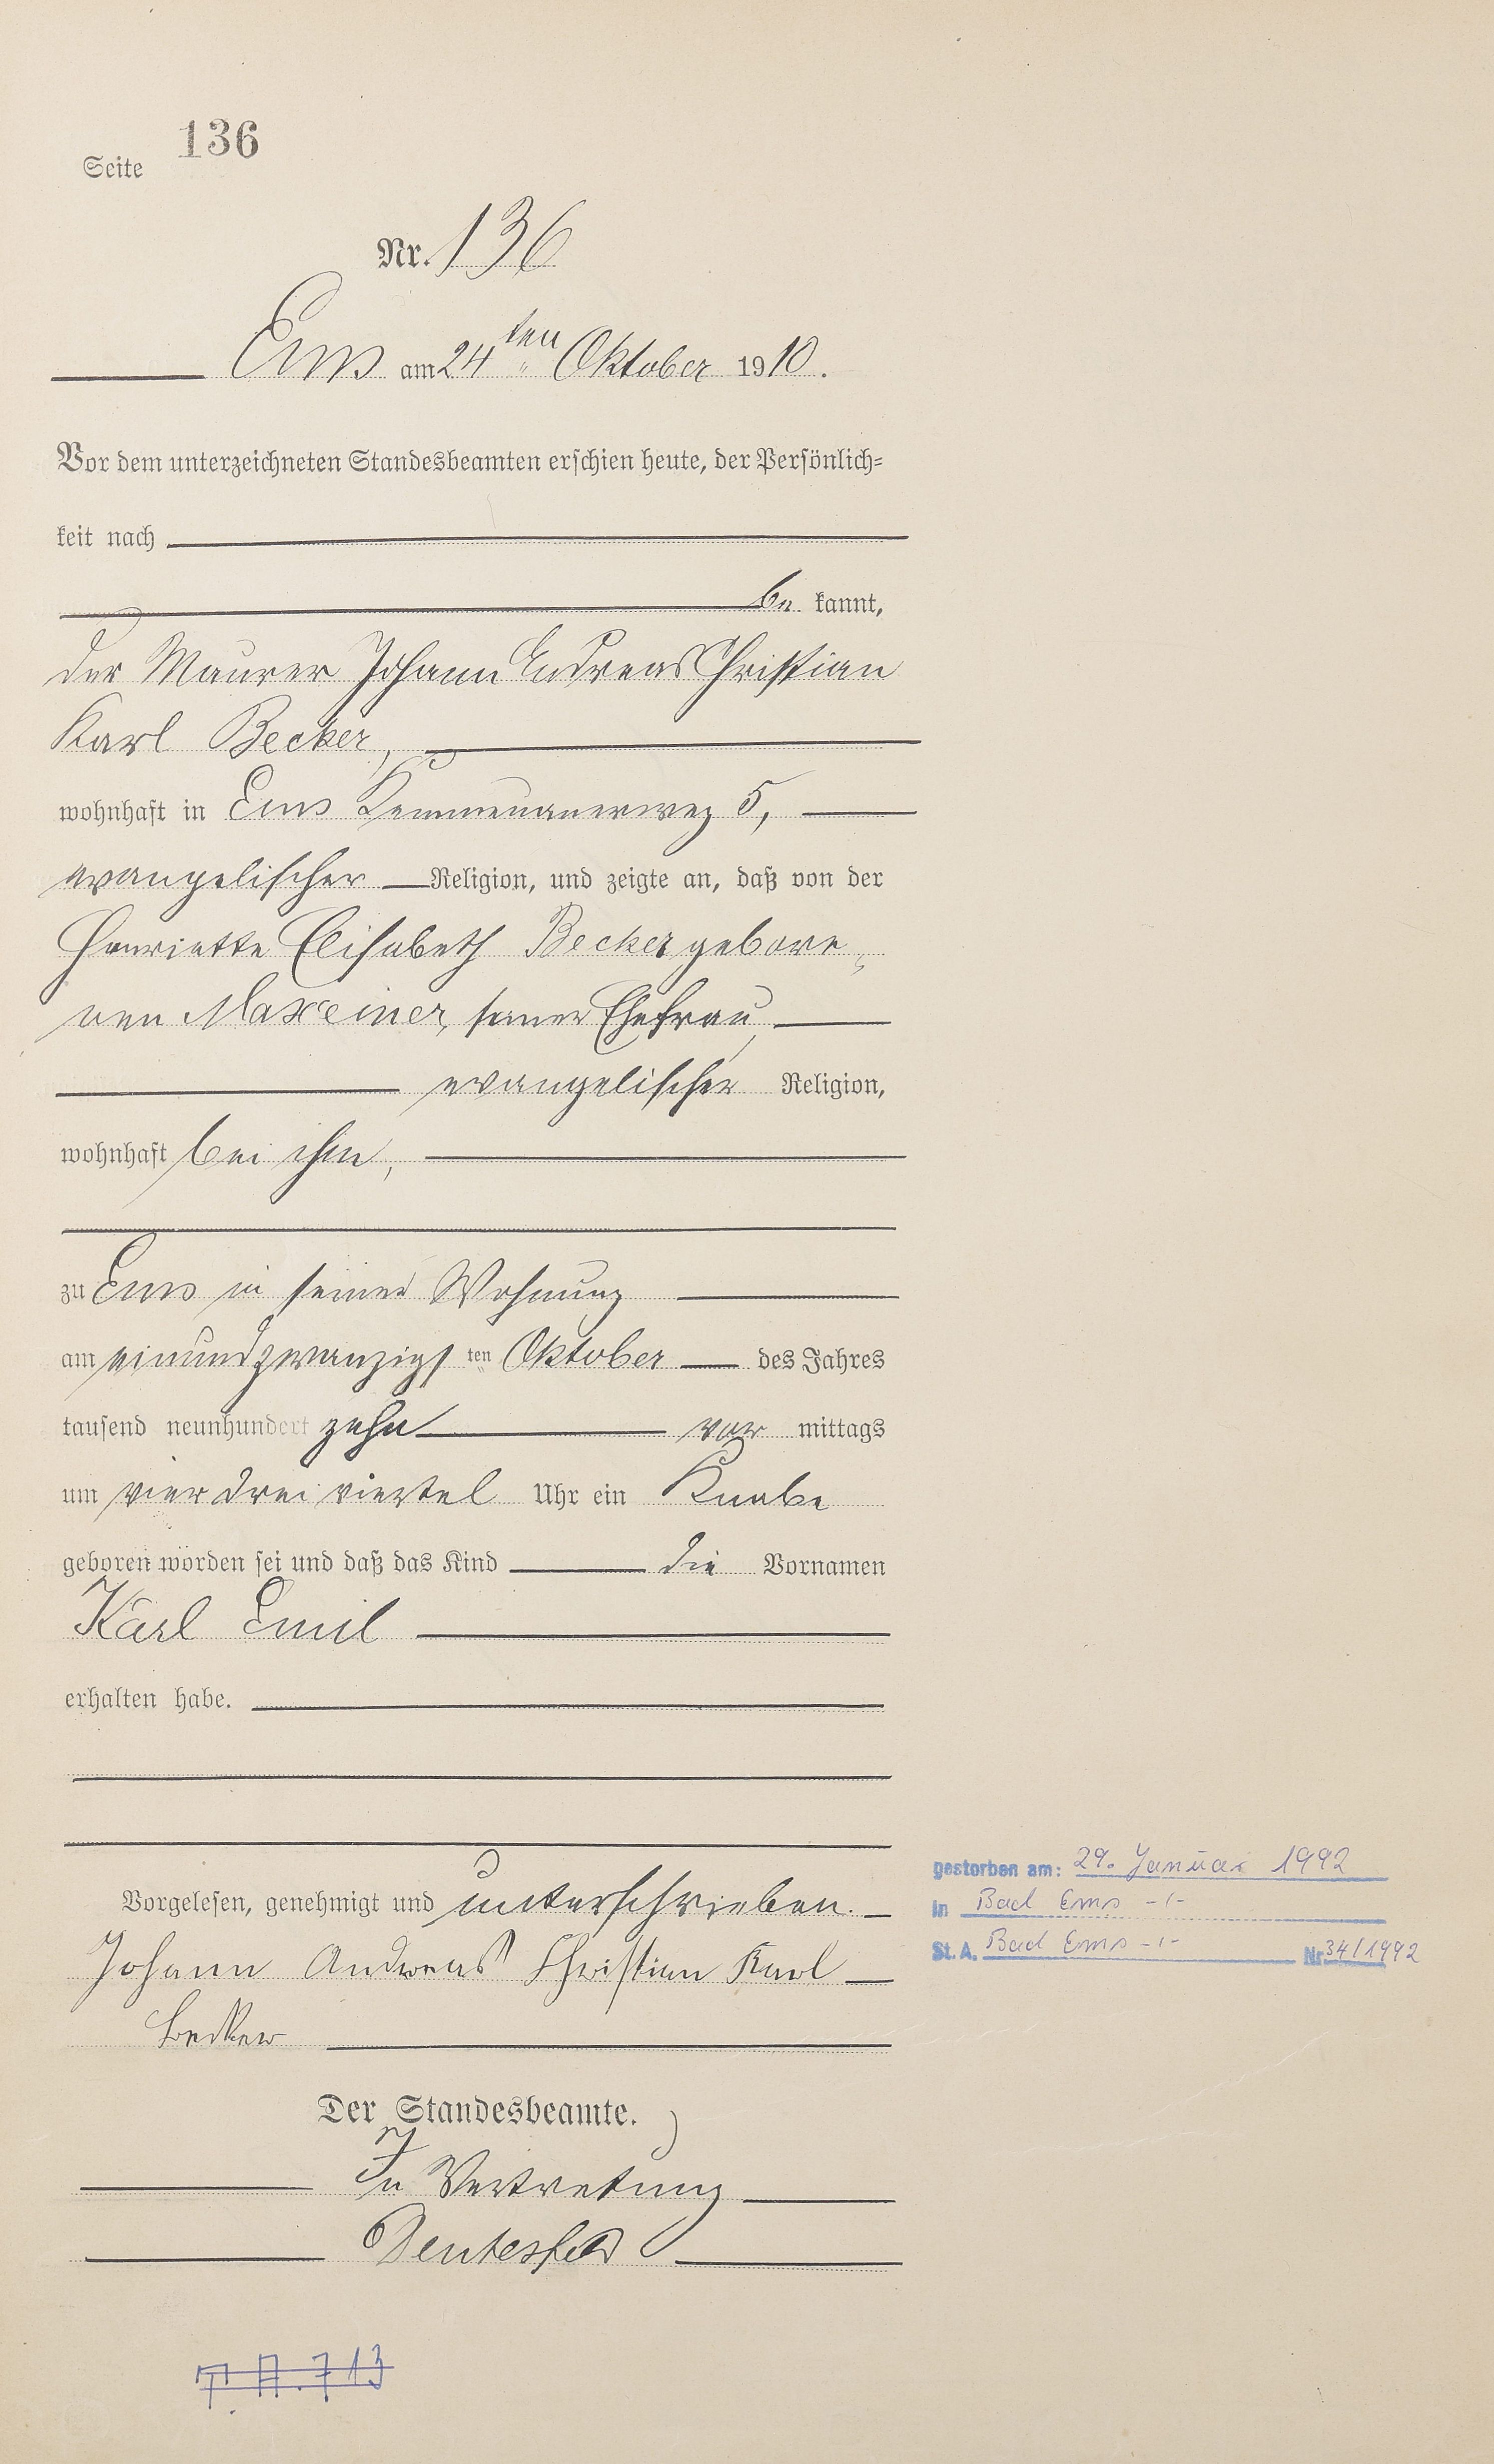 Seite 136
Nr. 136
Ems am 24ten Oktober 1910.
Vor dem unterzeichneten Standesbeamten erschien heute, der Persönlich-
keit nach
be kannt,
der Maurer Johann Andreas Christian
Karl Becker,
wohnhaft in Ems Kemmenauerweg 5,
evangelischer Religion, und zeigte an, daß von der
Henriette Elisabeth Becker gebore-
nen Maxeiner, seiner Ehefrau,
evangelischer Religion,
wohnhaft bei ihm,
zu Ems in seiner Wohnung
am einundzwanzigsten Oktober des Jahres
tausend neunhundert zehn vor mittags
um vier drei viertel Uhr ein Knabe
geboren worden sei und daß das Kind die Vornamen
Karl Emil
erhalten habe.
Vorgelesen, genehmigt und unterschrieben.
Johann Andreas Christian Karl
Becker
Der Standesbeamte.
In Vertretung
gestorben am: 29. Januar 1992
in Bad Ems -,-
St. A. Bad Ems -,- Nr 34/1992